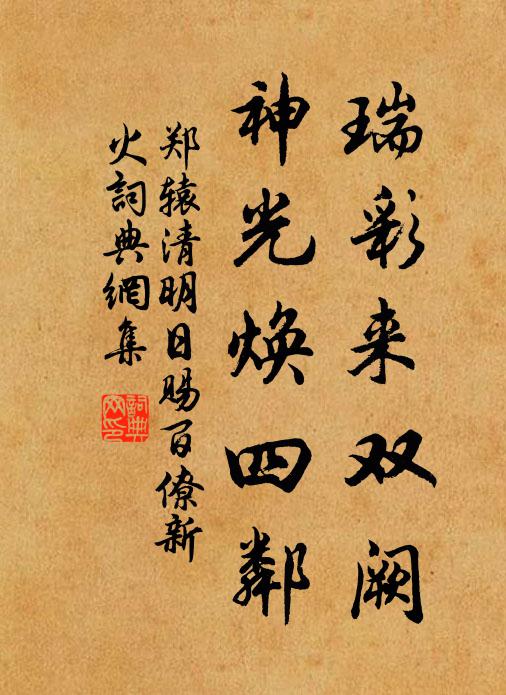 瑞彩来双阙
神光焕四鄰
郑辕清明日赐百僚新
火詞典網集
詞典
网印